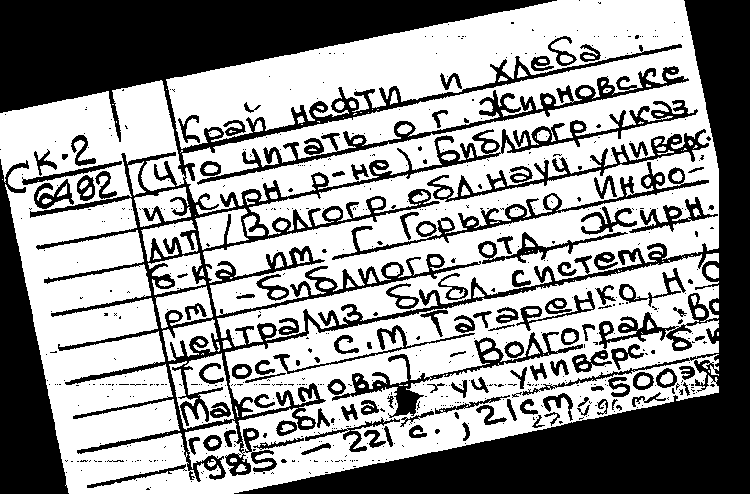 Край нефти и хлеба :
(Что читать о г. Жирновске
и Жирн. р-не) : Библиогр. указ.
лит. / Волгогр. обл. науч. универс.
б-ка им. Г. Горького. Инфо-
рм. -библиогр. отд., Жирн.
централиз. библ. система ;
[Сост.: С.М. Татаренко, Н.
Максимова]. - Волгоград : Во
гогр. обл. на уч универс. б-к
1985. - 221 с. ; 21cm. -500 эк
К.2
6492